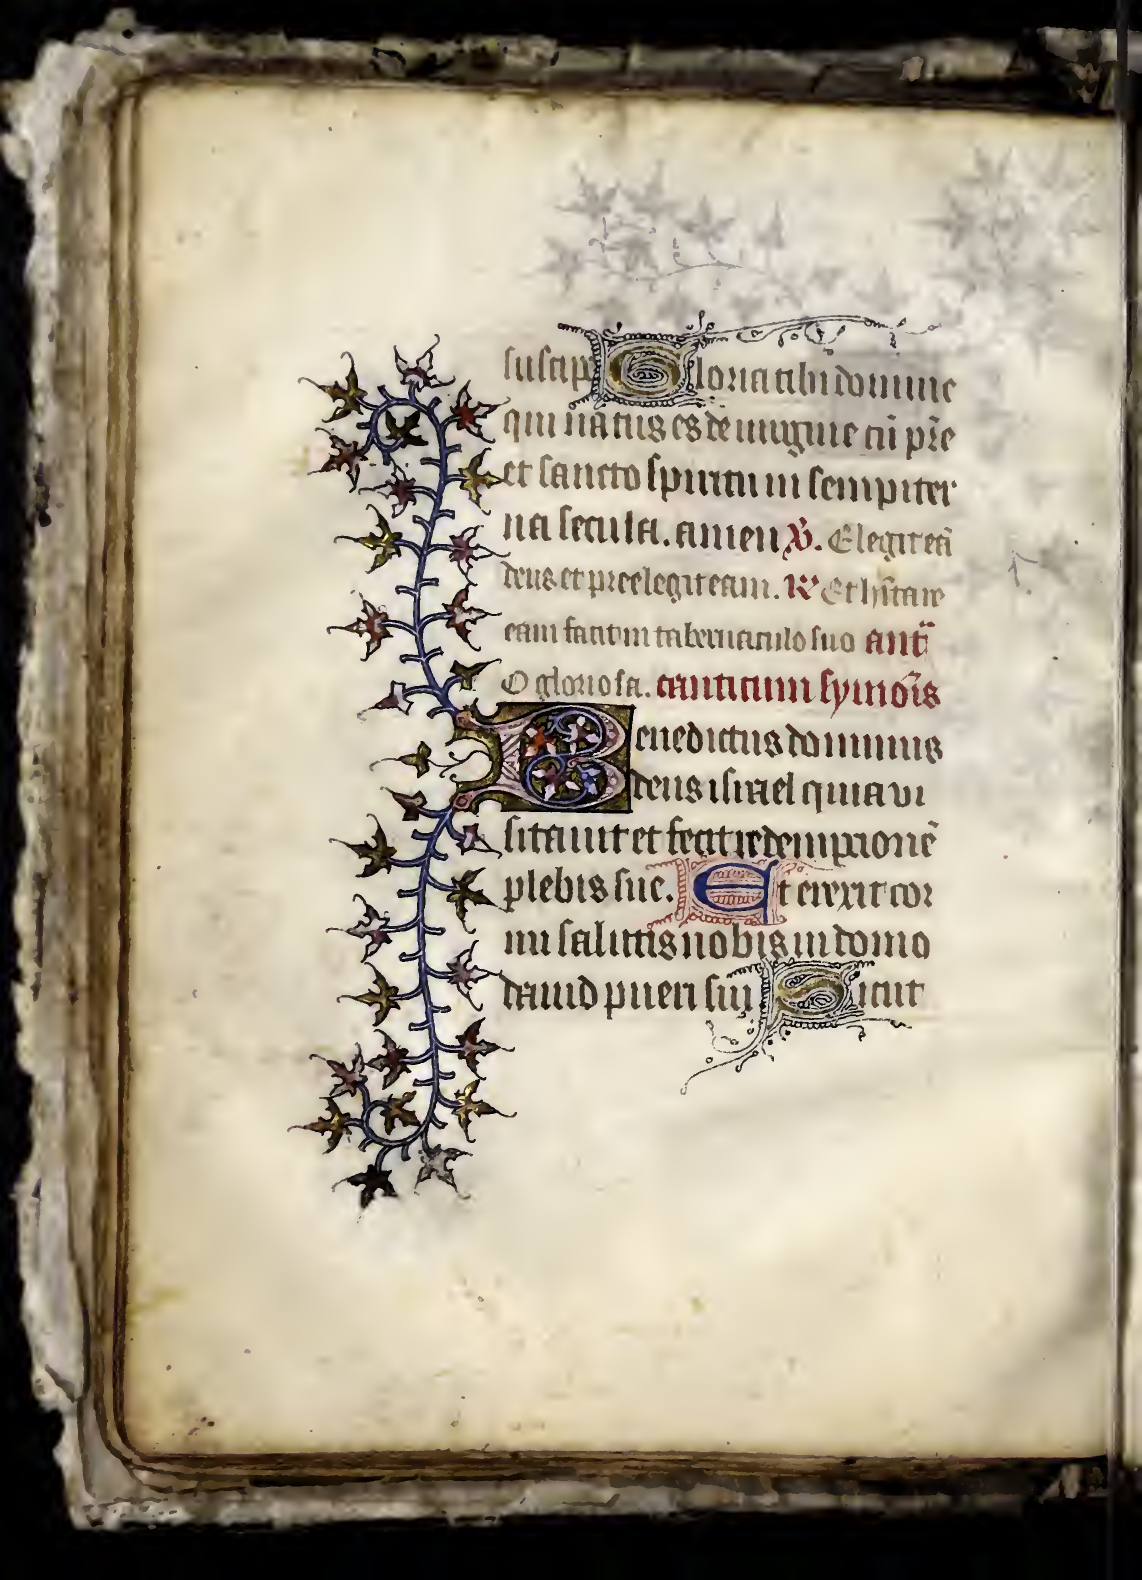 suscip Gloria tibi domine
qui natus es de uirgine cũ pr̃e
et sancto spiritu in sempiter
na secula. amen V̉. Elegit eã
deus et preelegit eam. R̉ Et hitare
eam facit in tabernaculo suo ant̃
O gloriosa. canticum symõis
Benedictus dominus
deus israel quia vi
sitauit et fecit redemptionẽ
plebis sue. Et erexit cor
nu salutis nobis in domo
dauid pueri sui Sicut